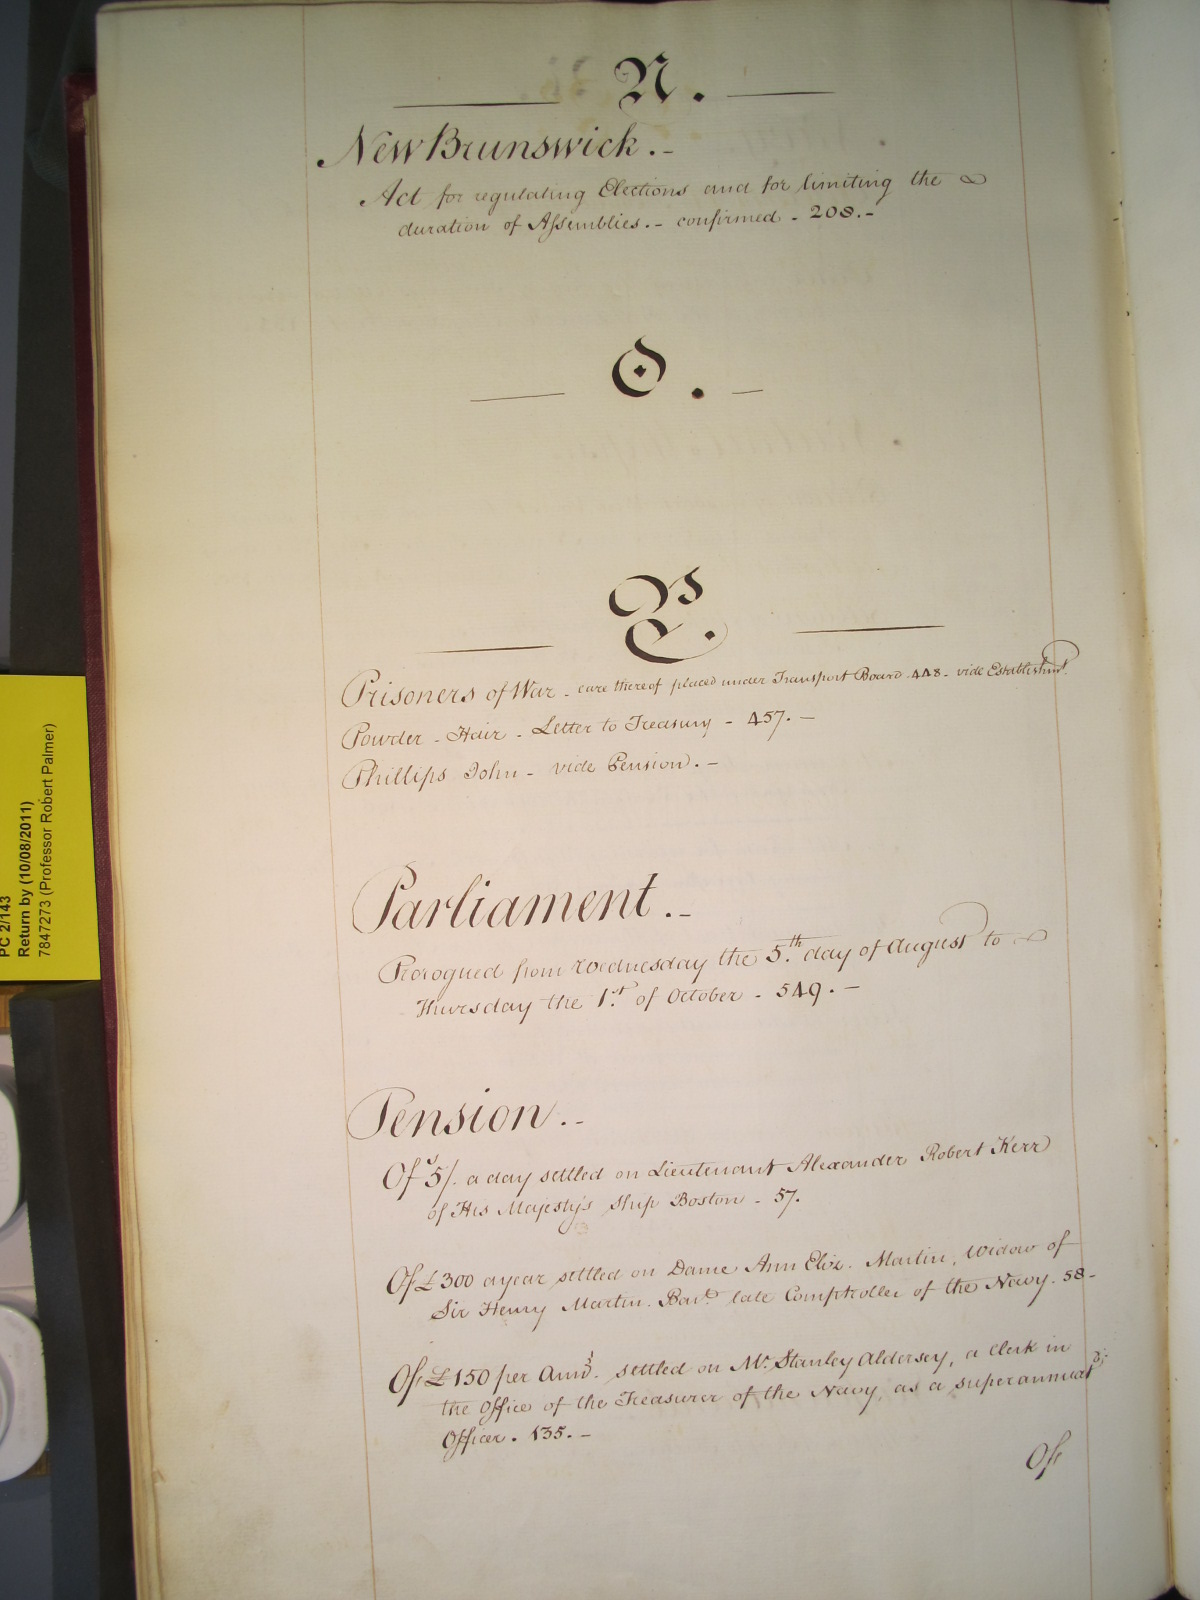 N.
New Brunswick.-
Act for regulating Elections and for limiting the
duration of Assemblies.- confirmed - 208.-
O.
P.
Prisoners of War - care thereof placed under Transport Board - 448 - vide Establishmt.
Powder - Hair - Letter to Treasury - 457.-
Phillips John - vide Pension.-
Parliament.-
Prorogued from Wednesday the 5.th day of August to
Thursday the 1.st of October - 549.-
Pension.-
Of 5s/. a day settled on Lieutenant Alexander Robert Kerr
of His Majesty's Ship Boston - 57.
Of £300 a year settled on Dame Ann Eliz. Martin, Widow of
Sir Henry Martin. Bart. late Comptroller of the Navy. 58-
Of £150 per Annm. settled on Mr. Stanley Aldersey, a Clerk in
the Office of the Treasurer of the Navy, as a superannuatd.
Officer. 135.-
Of
PC 2/143
Return by (10/08/2011)
7847273 (Professor Robert Palmer)